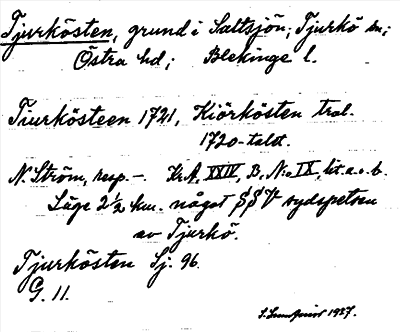 Tjurkösten, grund i Saltsjön; Tjurkö sn;
Östra hd; Blekinge l.
Tiurkösteen 1721, Kiörkösten trol.
1720-talet.
N. Ström, resp. -. KrA. XXIV, B, N:o IX, lit. a. o. b.
Läge 2½ km. något SSV sydspetsen
av Tjurkö.
Tjurkösten Sj. 96.
G. 11.
1927.